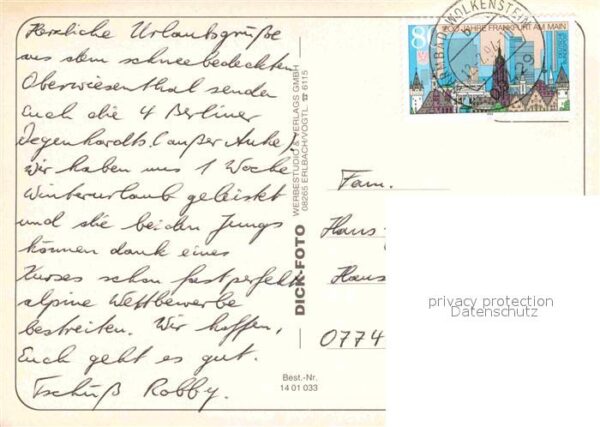 Herzliche Urlaubsgrüße
aus dem schneebedeckten
Oberwiesenthal senden
Euch die 4 Berliner
Degenhardts. (außer Anke)
Wir haben uns 1 Woche
Winterurlaub geleistet
und die beiden Jungs
können dank eines
Kurses schon fast perfekte
alpine Wettbewerbe
bestreiten. Wir hoffen,
Euch geht es gut.
Tschüß Robby.
DICK-FOTO
WERBESTUDIO & VERLAGS GMBH
08265 ERLBACH/VOGTL. ☎ 6115
Best.-Nr.
14 01 033
80
1200 JAHRE FRANKFURT AM MAIN
WOLKENSTEIN
Fam.
Hans-
Haus
0774
privacy protection
Datenschutz